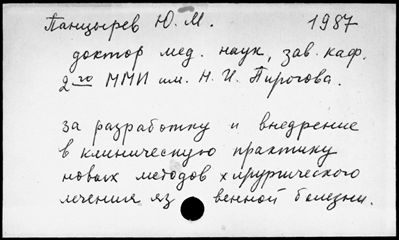 Панцырев Ю. М. 1987
доктор мед. наук, зав. каф.
2го ММИ им. Н. И. Пирогова.
за разработку и внедрение
в клиническую практику
новых методов хирургического
лечения язвенной болезни.